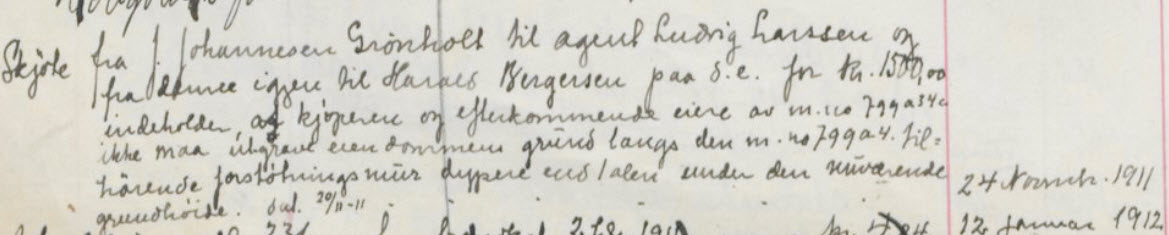 Skjøte fra J. Johannesen Grönholt til agent Ludvig Larssen og
fra denne igjen til Harald Bergersen paa d.e. for kr. 1500,00
indeholder, at kjøperen og efterkommende eiere av m.no 799a34c
ikke maa utgrave eiendommens grund langs den m.no 799a4. til=
hørende forstøtningsmur dypere end 1 alen under den nuværende
grundhöide. dat. 20/11-11
24 Novemb. 1911
12 januar 1912